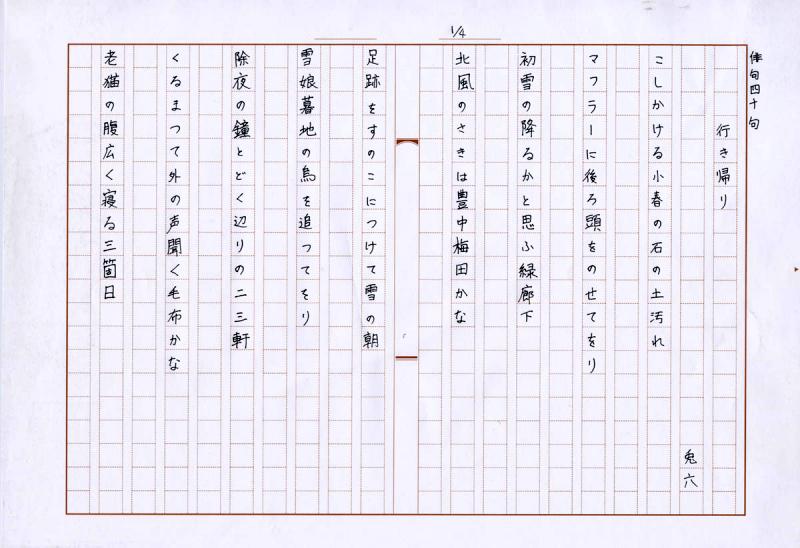 1/4
俳句四十句
行き帰り
兎六
こしかける小春の石の土汚れ
マフラーに後ろ頭をのせてをり
初雪の降るかと思ふ緑廊下
北風のさきは豊中梅田かな
足跡をすのこにつけて雪の朝
雪娘墓地の鳥を追つてをり
除夜の鐘とどく辺りの二三軒
くるまつて外の声聞く毛布かな
老猫の腹広く寝る三箇日